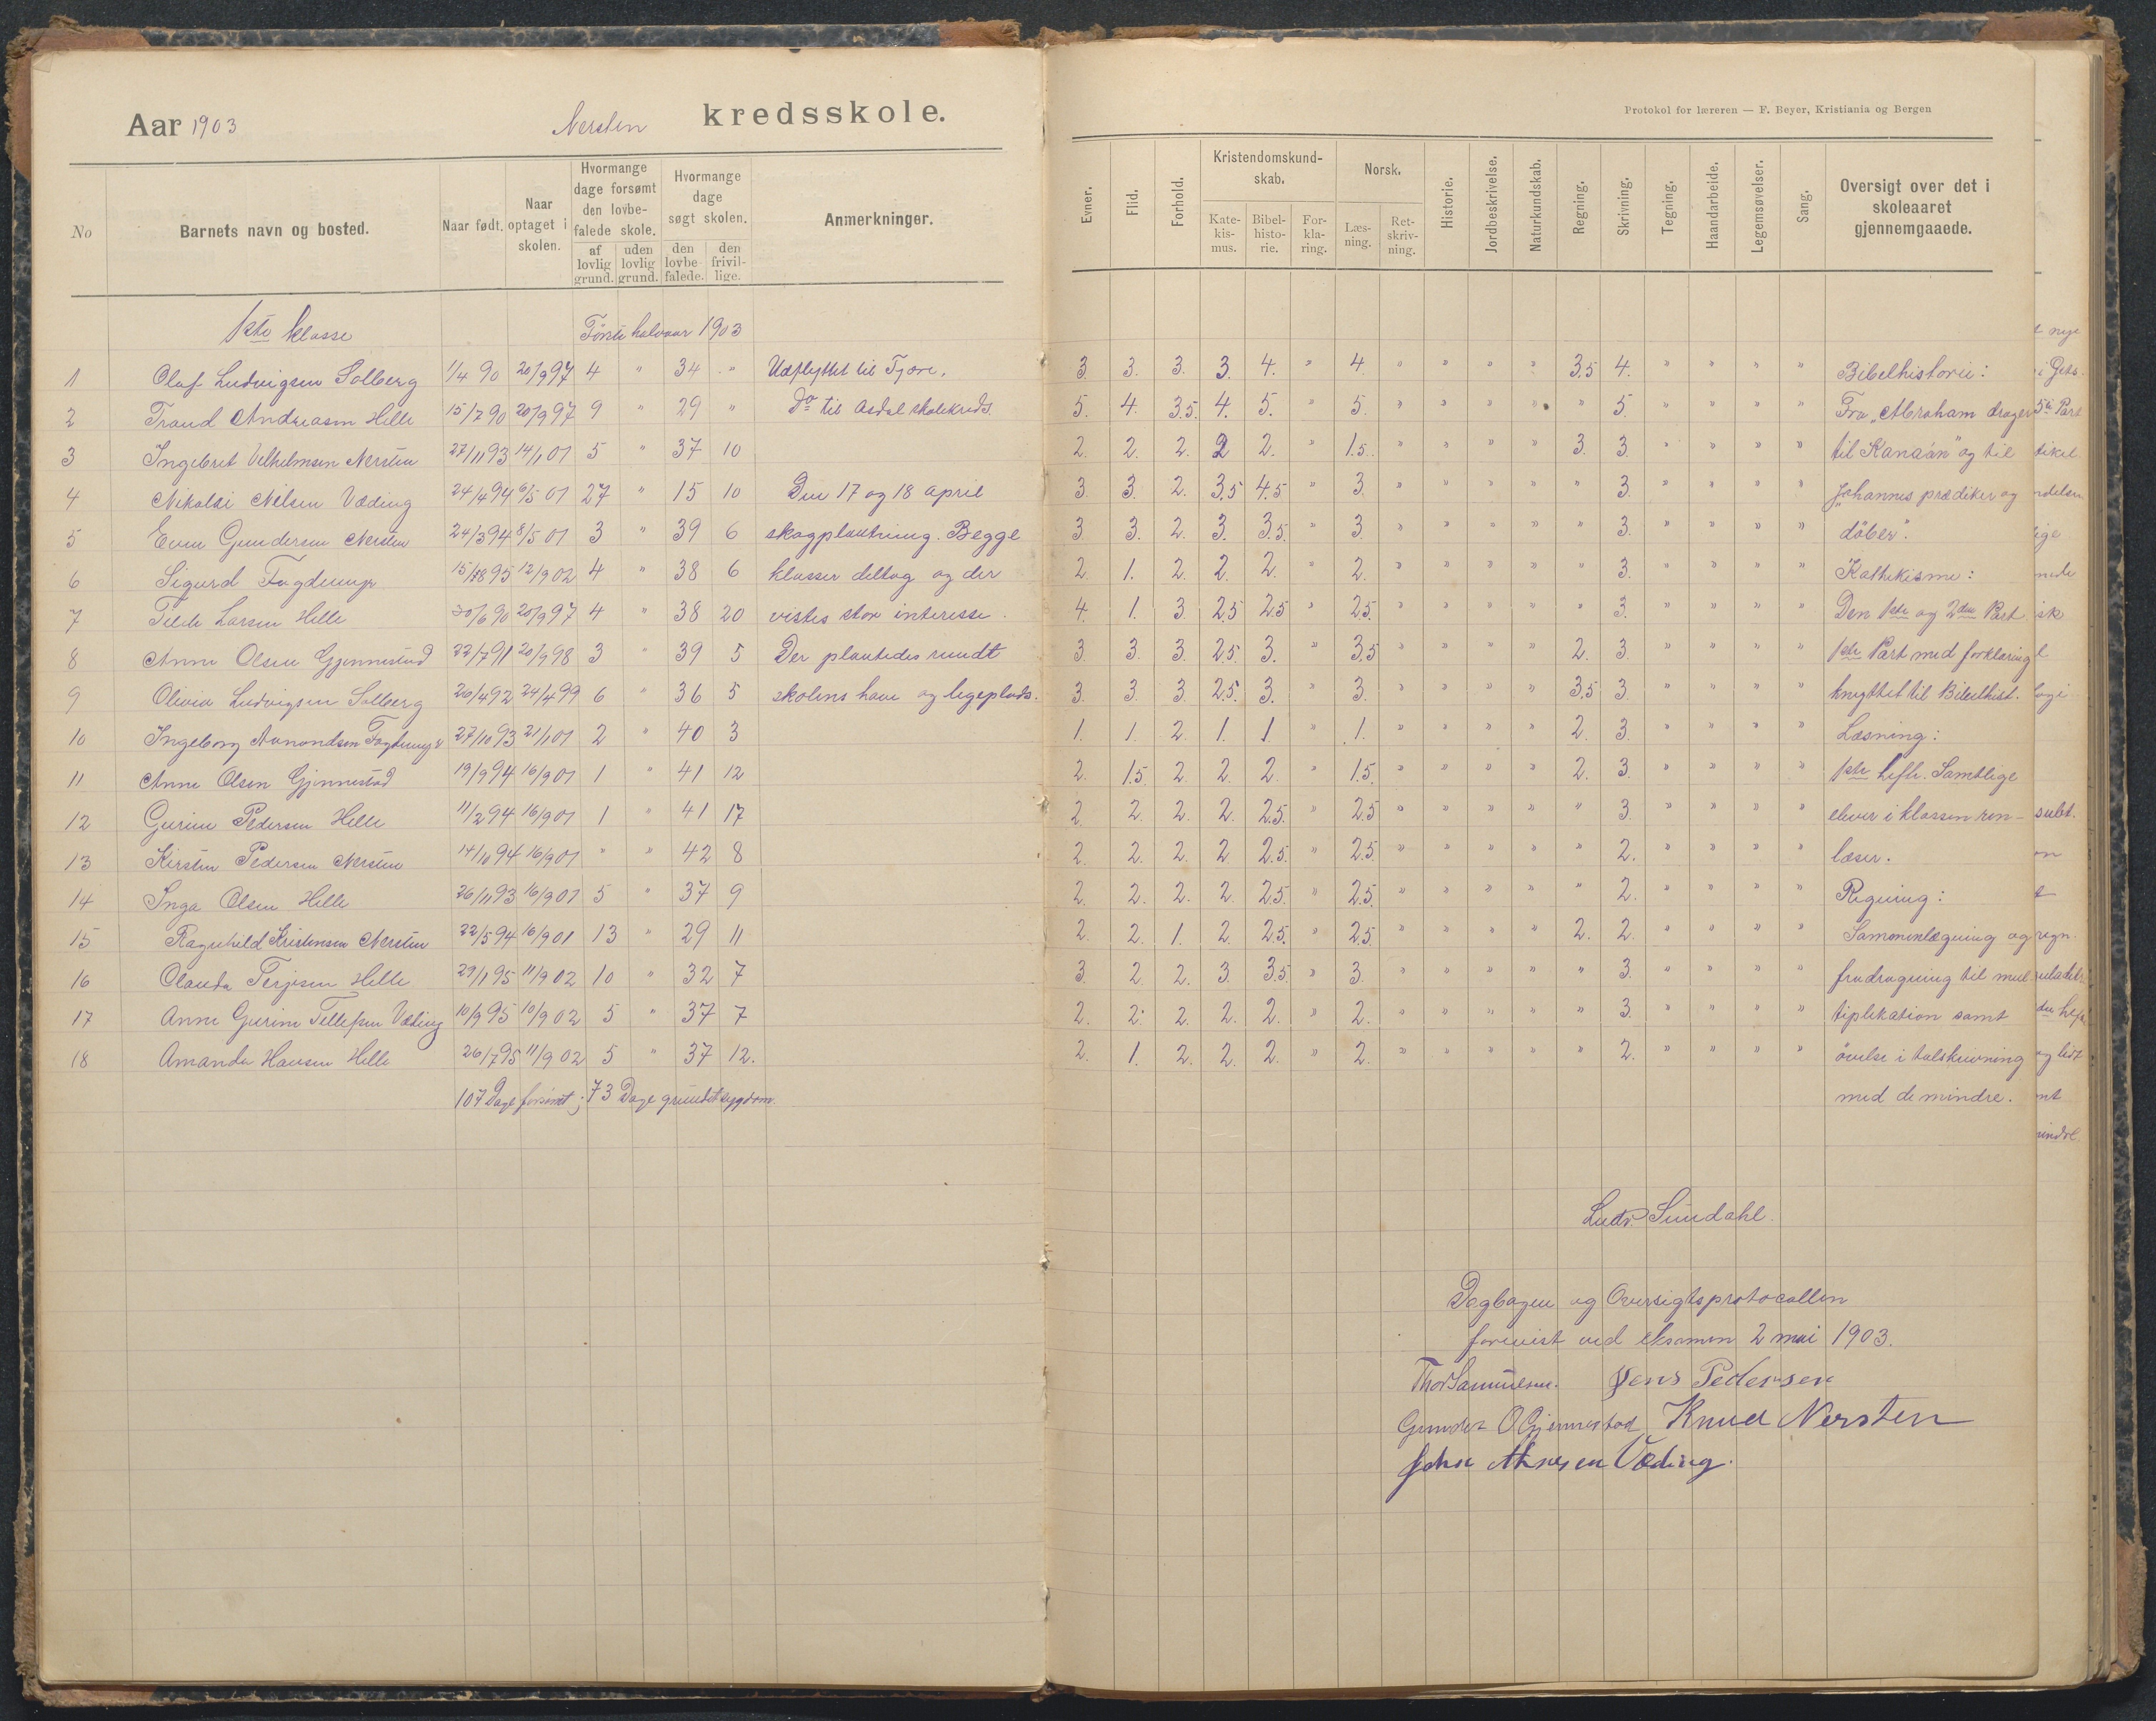 Aar 1903 Nersten kredsskole.
Protokol for læreren — F. Beyer, Kristiania og Bergen
No Barnets navn og bosted. Naar født. Naar optaget i skolen. Hvormange dage forsømt den lovbefalede skole. af lovlig grund. uden lovlig grund. Hvormange dage søgt skolen. den lovbefalede. den frivillige. Anmerkninger.
Evner. Flid. Forhold. Kristendomskundskab. Katekismus. Bibelhistorie. Forklaring. Norsk. Læsning. Retskrivning. Historie. Jordbeskrivelse. Naturkundskab. Regning. Skrivning. Tegning. Haandarbeide. Legemsøvelser. Sang. Oversigt over det i skoleaaret gjennemgaaede.
1ste klasse Første halvaar 1903
1 Olaf Ludvigsen Solberg 1/4 90 20/9 97 4 " 34 " Udflyttet til Fjære. 3. 3. 3. 3. 4. " 4. " " " " 3.5 4. " " " " Bibelhistorie:
2 Traud Andreasen Helle 15/7 90 20/9 97 9 " 29 " Do til Asdal skolekreds. 5. 4. 3.5. 4. 5. " 5. " " " " " 5. " " " " Fra "Abraham drager
3 Ingebret Vilhelmsen Nersten 27/11 93 14/1 01 5 " 37 10 2. 2. 2. 2 2. " 1.5. " " " " 3. 3. " " " " til Kanaan" og til
4 Nikolai Nilsen Væding 24/4 94 6/5 01 27 " 15 10 Den 17 og 18 april 3. 3. 2. 3.5 4.5 " 3. " " " " " 3. " " " " "Johannes prædiker og
5 Even Gundersen Nersten 24/3 94 8/5 01 3 " 39 6 skogplantning. Begge 3. 3. 2. 3. 3.5. " 3. " " " " " 3. " " " " døber".
6 Sigurd 12/9 02 4 " 38 6 klasser deltog og der 2. 1. 2. 2. 2. " 2. " " " " " 3. " " " " Kathekisme:
7 Larsen Helle 30/6 90 20/9 97 4 " 38 20 vistes stor interesse. 4. 1. 3. 2.5 2.5 " 2.5. " " " " " 3. " " " " Den 1ste og 2den Part
8 Anne Olsen Gjennestad 22/7 91 20/9 98 3 " 39 5 Der plantedes rundt 3. 3. 3. 2.5. 3. " 3.5 " " " " 2. 3. " " " " 1ste Part med forklaring
9 Olivia Ludvigsen Solberg 26/4 92 24/4 99 6 " 36 5 skolens have og legeplads. 3. 3. 3. 2.5. 3. " 3. " " " " 3.5 3. " " " " knyttet til Bibelhist.
10 Ingeborg Aanondsen 27/10 93 21/1 01 2 " 40 3 1. 1. 2. 1. 1 " 1. " " " " 2. 3. " " " " Læsning:
11 Anne Olsen Gjennestad 19/9 94 16/9 01 1 " 41 12 2. 1.5 2. 2. 2. " 1.5. " " " " 2. 3. " " " " 1ste hefte. Samtlige
12 Gurine Pedersen Helle 11/2 94 16/9 01 1 " 41 17 2. 2. 2. 2. 2.5. " 2.5 " " " " " 3. " " " " elever i klassen ren-
13 Kirsten Pedersen Nersten 14/10 94 16/9 01 " " 42 8 2. 2. 2. 2 2.5. " 2.5. " " " " " 2. " " " " læser.
14 Inga Olsen Helle 26/11 93 16/9 01 5 " 37 9 2. 2. 2. 2. 2.5. " 2.5. " " " " " 2. " " " " Regning:
15 Ragnhild Kristensen Nersten 22/5 94 16/9 01 13 " 29 11 2. 2. 1. 2. 2.5. " 2.5. " " " " 2. 2. " " " " Sammenlægning og
16 Olauda Terjesen Helle 29/1 95 11/9 02 10 " 32 7 3. 2. 2. 3. 3.5. " 3. " " " " " 3. " " " " fradragning til mul-
17 Anne Gurine Tellefsen Væding 10/9 95 10/9 02 5 " 37 7 2. 2. 2. 2. 2. " 2. " " " " " 3. " " " " tiplikation samt
18 Amanda Hansen Helle 26/7 95 11/9 02 5 " 37 12. 2. 1. 2. 2. 2. " 2. " " " " " 2. " " " " øvelse i talskrivning
107 Dage forsømt; 73 Dage grundet sygdom. med de mindre.
Ludv. Sundahl.
Dagbogen og Oversigtsprotocollen
forevist ved eksamen 2 mai 1903.
Thor Samuelsen. Jens Pedersen
Gunder O Gjennestad Knud Nersten
John Væding.